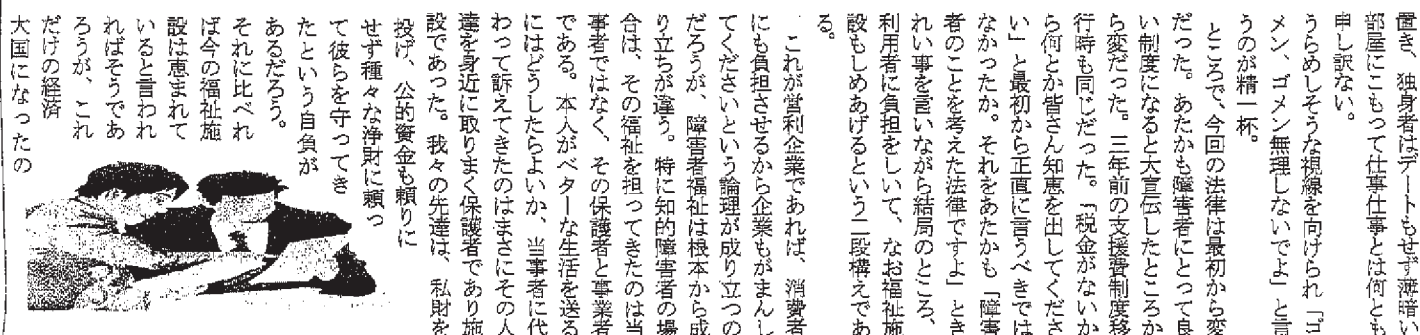 置き、独身者はデートもせず薄暗い
部屋にこもって仕事仕事とは何とも
申し訳ない。
うらめしそうな視線を向けられ「ゴ
メン、ゴメン無理しないでよ」と言
うのが精一杯。
ところで、今回の法律は最初から変
だった。あたかも障害者にとって良
い制度になると大宣伝したところか
ら変だった。三年前の支援費制度移
行時も同じだった。「税金がないか
ら何とか皆さん知恵を出してくださ
い」と最初から正直に言うべきでは
なかったか。それをあたかも「障害
者のことを考えた法律ですよ」とき
れい事を言いながら結局のところ、
利用者に負担をしいて、なお福祉施
設もしめあげるという二段構えであ
る。
これが営利企業であれば、消費者
にも負担させるから企業もがまんし
てくださいという論理が成り立つの
だろうが、障害者福祉は根本から成
り立ちが違う。特に知的障害者の場
合は、その福祉を担ってきたのは当
事者ではなく、その保護者と事業者
である。本人がベターな生活を送る
にはどうしたらよいか、当事者に代
わって訴えてきたのはまさにその人
達を身近に取りまく保護者であり施
設であった。我々の先達は、私財を
投げ、公的資金も頼りに
せず種々な浄財に頼っ
て彼らを守ってき
たという自負が
あるだろう。
それに比べれ
ば今の福祉施
設は恵まれて
いると言われ
ればそうであ
ろうが、これ
だけの経済
大国になったの